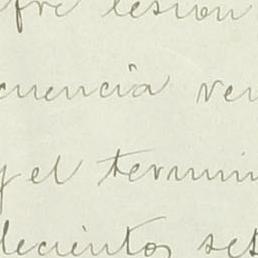 fre lesion
cuencia ver
y el termin
lecientos ses